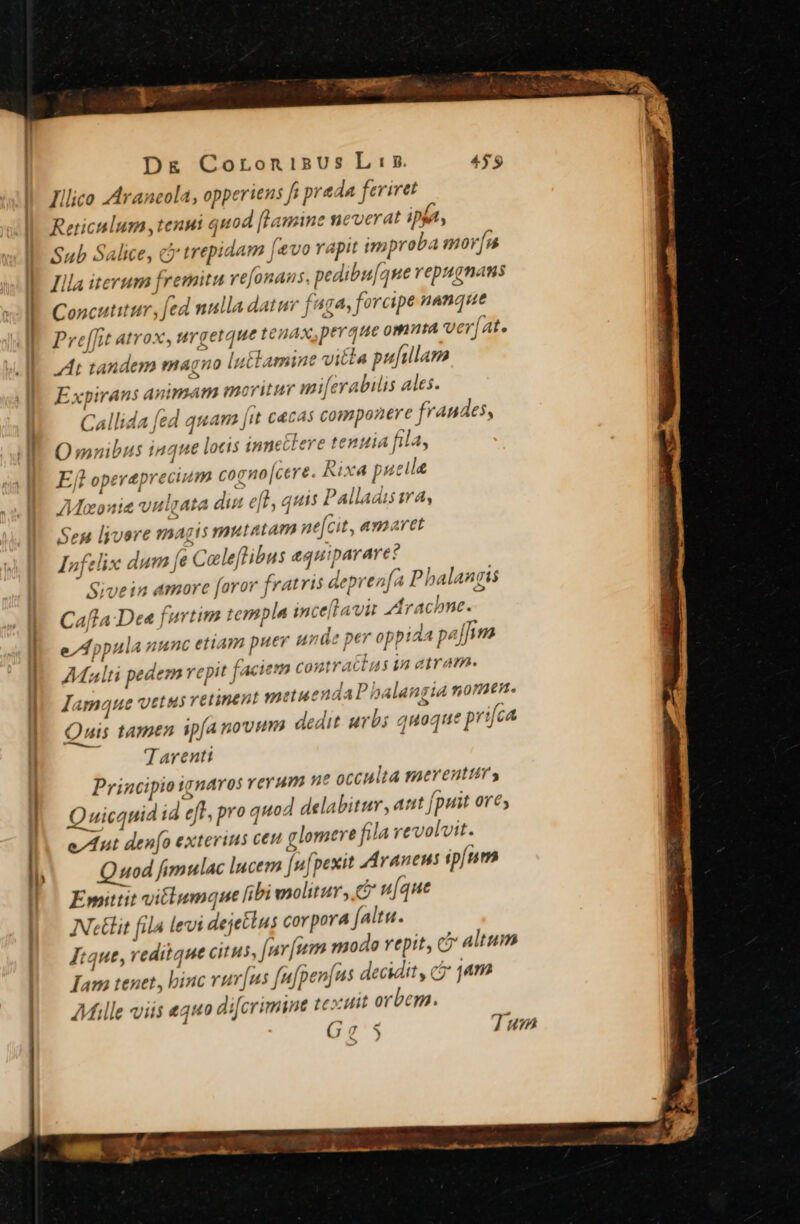 De Coloribus Lib. 459
Illico Araneola, opperiens si præda feriret
Reticulum, tenui quod stamine neverat ipsa,
Sub Salice, & trepidam sævo rapit improba morsu
Illa iterum fremitu resonans, pedibusque repugnans
Concutitur, sed nulla datur fuga, forcipe nanque
Pressit atrox, urgetque tenax, perque omnia versat.
At tandem magno luctamine victa pusillam
Expirans animam moritur miserabilis ales.
Callida sed quam sit cæcas componere fraudes,
Omnibus inque locis innectere tenuia fila,
Est operæprecium cognoscere. Rixa puellæ
Mæoniæ vulgata diu est, quis Palladis ira,
Seu livore magis mutatam nescit, amaret
Infelix dum se Cœlestibus æquiparare?
Sive in amore soror fratris deprensa Phalangis
Casta Deæ furtim templa incestavit Arachne.
Appula nunc etiam puer unde per oppida passim
Multi pedem repit faciem contractus in atram.
Iamque vetus retinent metuenda Phalangia nomen.
Quis tamen ipsa novum dedit urbs quoque prisca
Tarenti
Principio ignaros rerum ne occulta merentur,
Quicquid id est, pro quod delabitur, aut spuit ore,
Aut denso exterius ceu glomere fila revolvit.
Quod simulac lucem suspexit Araneus ipsum
Emittit victumque sibi molitur, & usque
Nectit fila levi dejectus corpora saltu.
Itque, reditque citus, sursum modo repit, & altum
Iam tenet, hinc rursus suspensus decidit, & jam
Mille viis æquo discrimine texuit orbem.
Gg 5 Tum